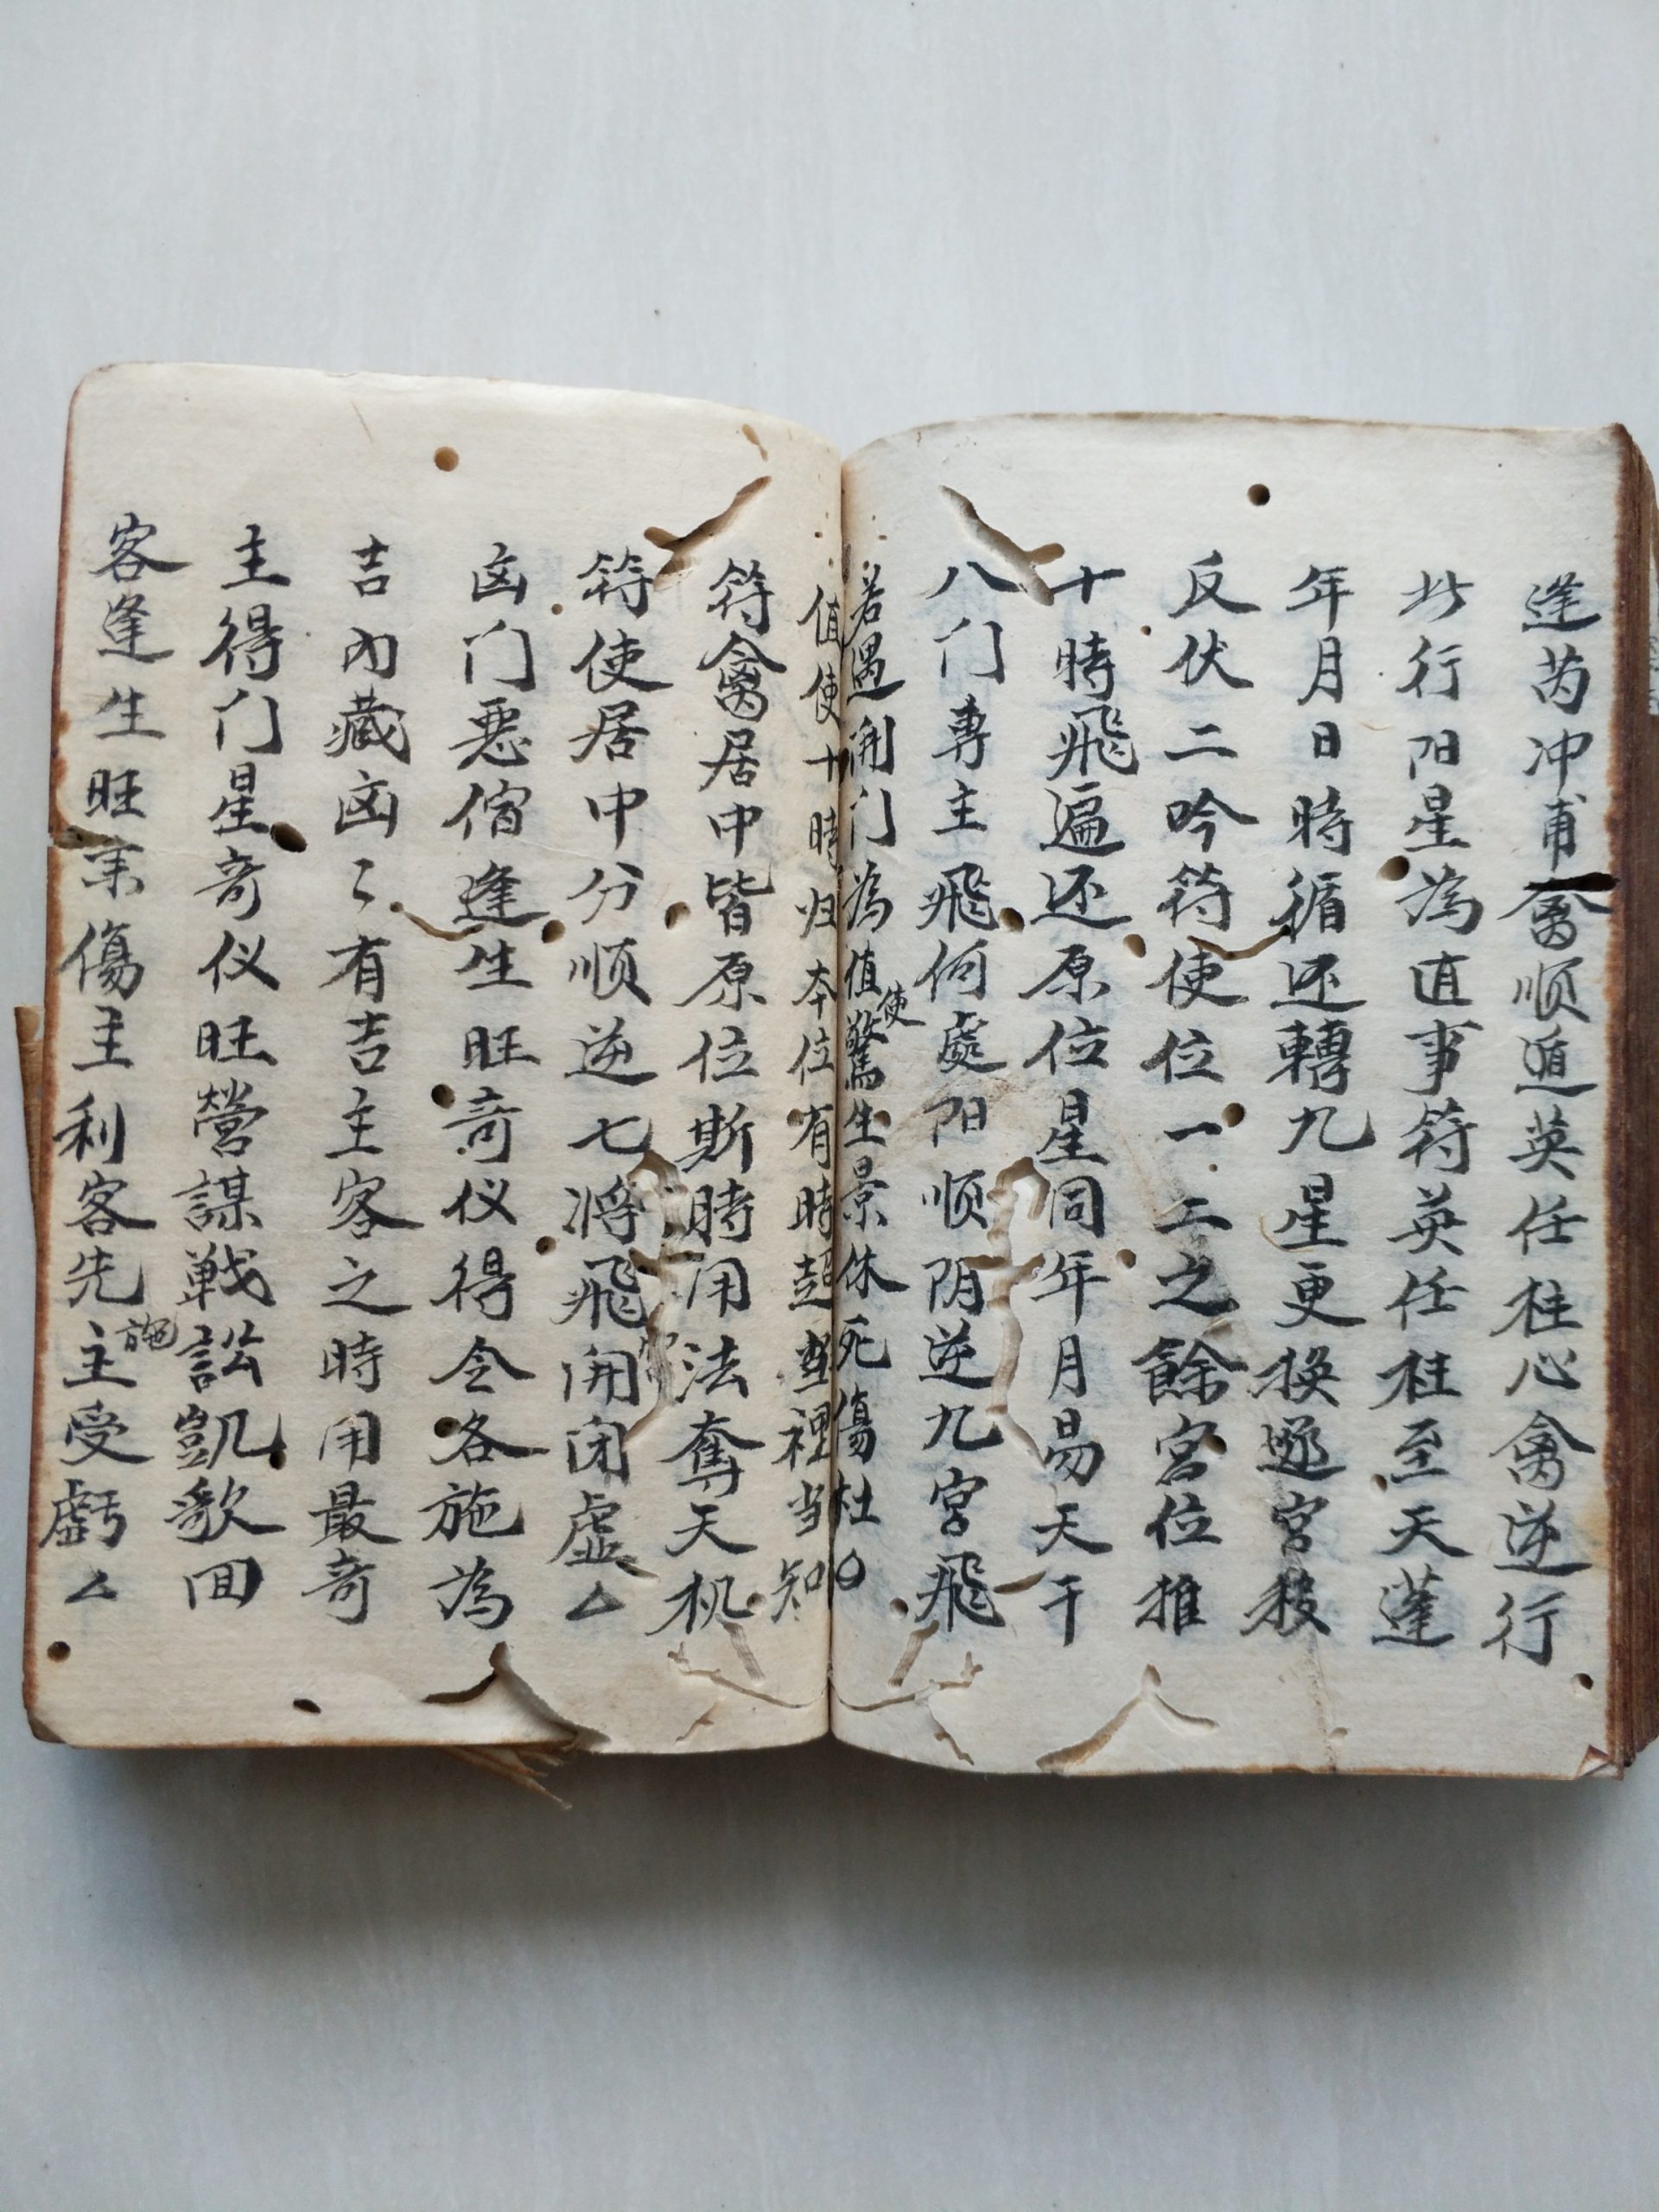 逢芮冲甫禽顺遁英任柱心禽逆行
此行阳星為直事符英任柱至天蓬
年月日時循还轉九星更换逐宫移
反伏二吟符使位一二之餘宫位推
十時飛遍还原位星同年月易天干
八门専主飛何處阳顺阴逆九宫飛
若遇開门為值使驚生景休死傷杜〇
值使十時归本位有時超盘裡当知
符禽居中皆原位斯時用法奪天机
符使居中分顺逆七將飛開闭虚厶
凶门惡宿逢生旺奇仪得令各施為
吉內藏凶〻有吉主客之時用最奇
主得门星奇仪旺營謀戦訟凱歌回
客逢生旺来傷主利客先施主受虧厶